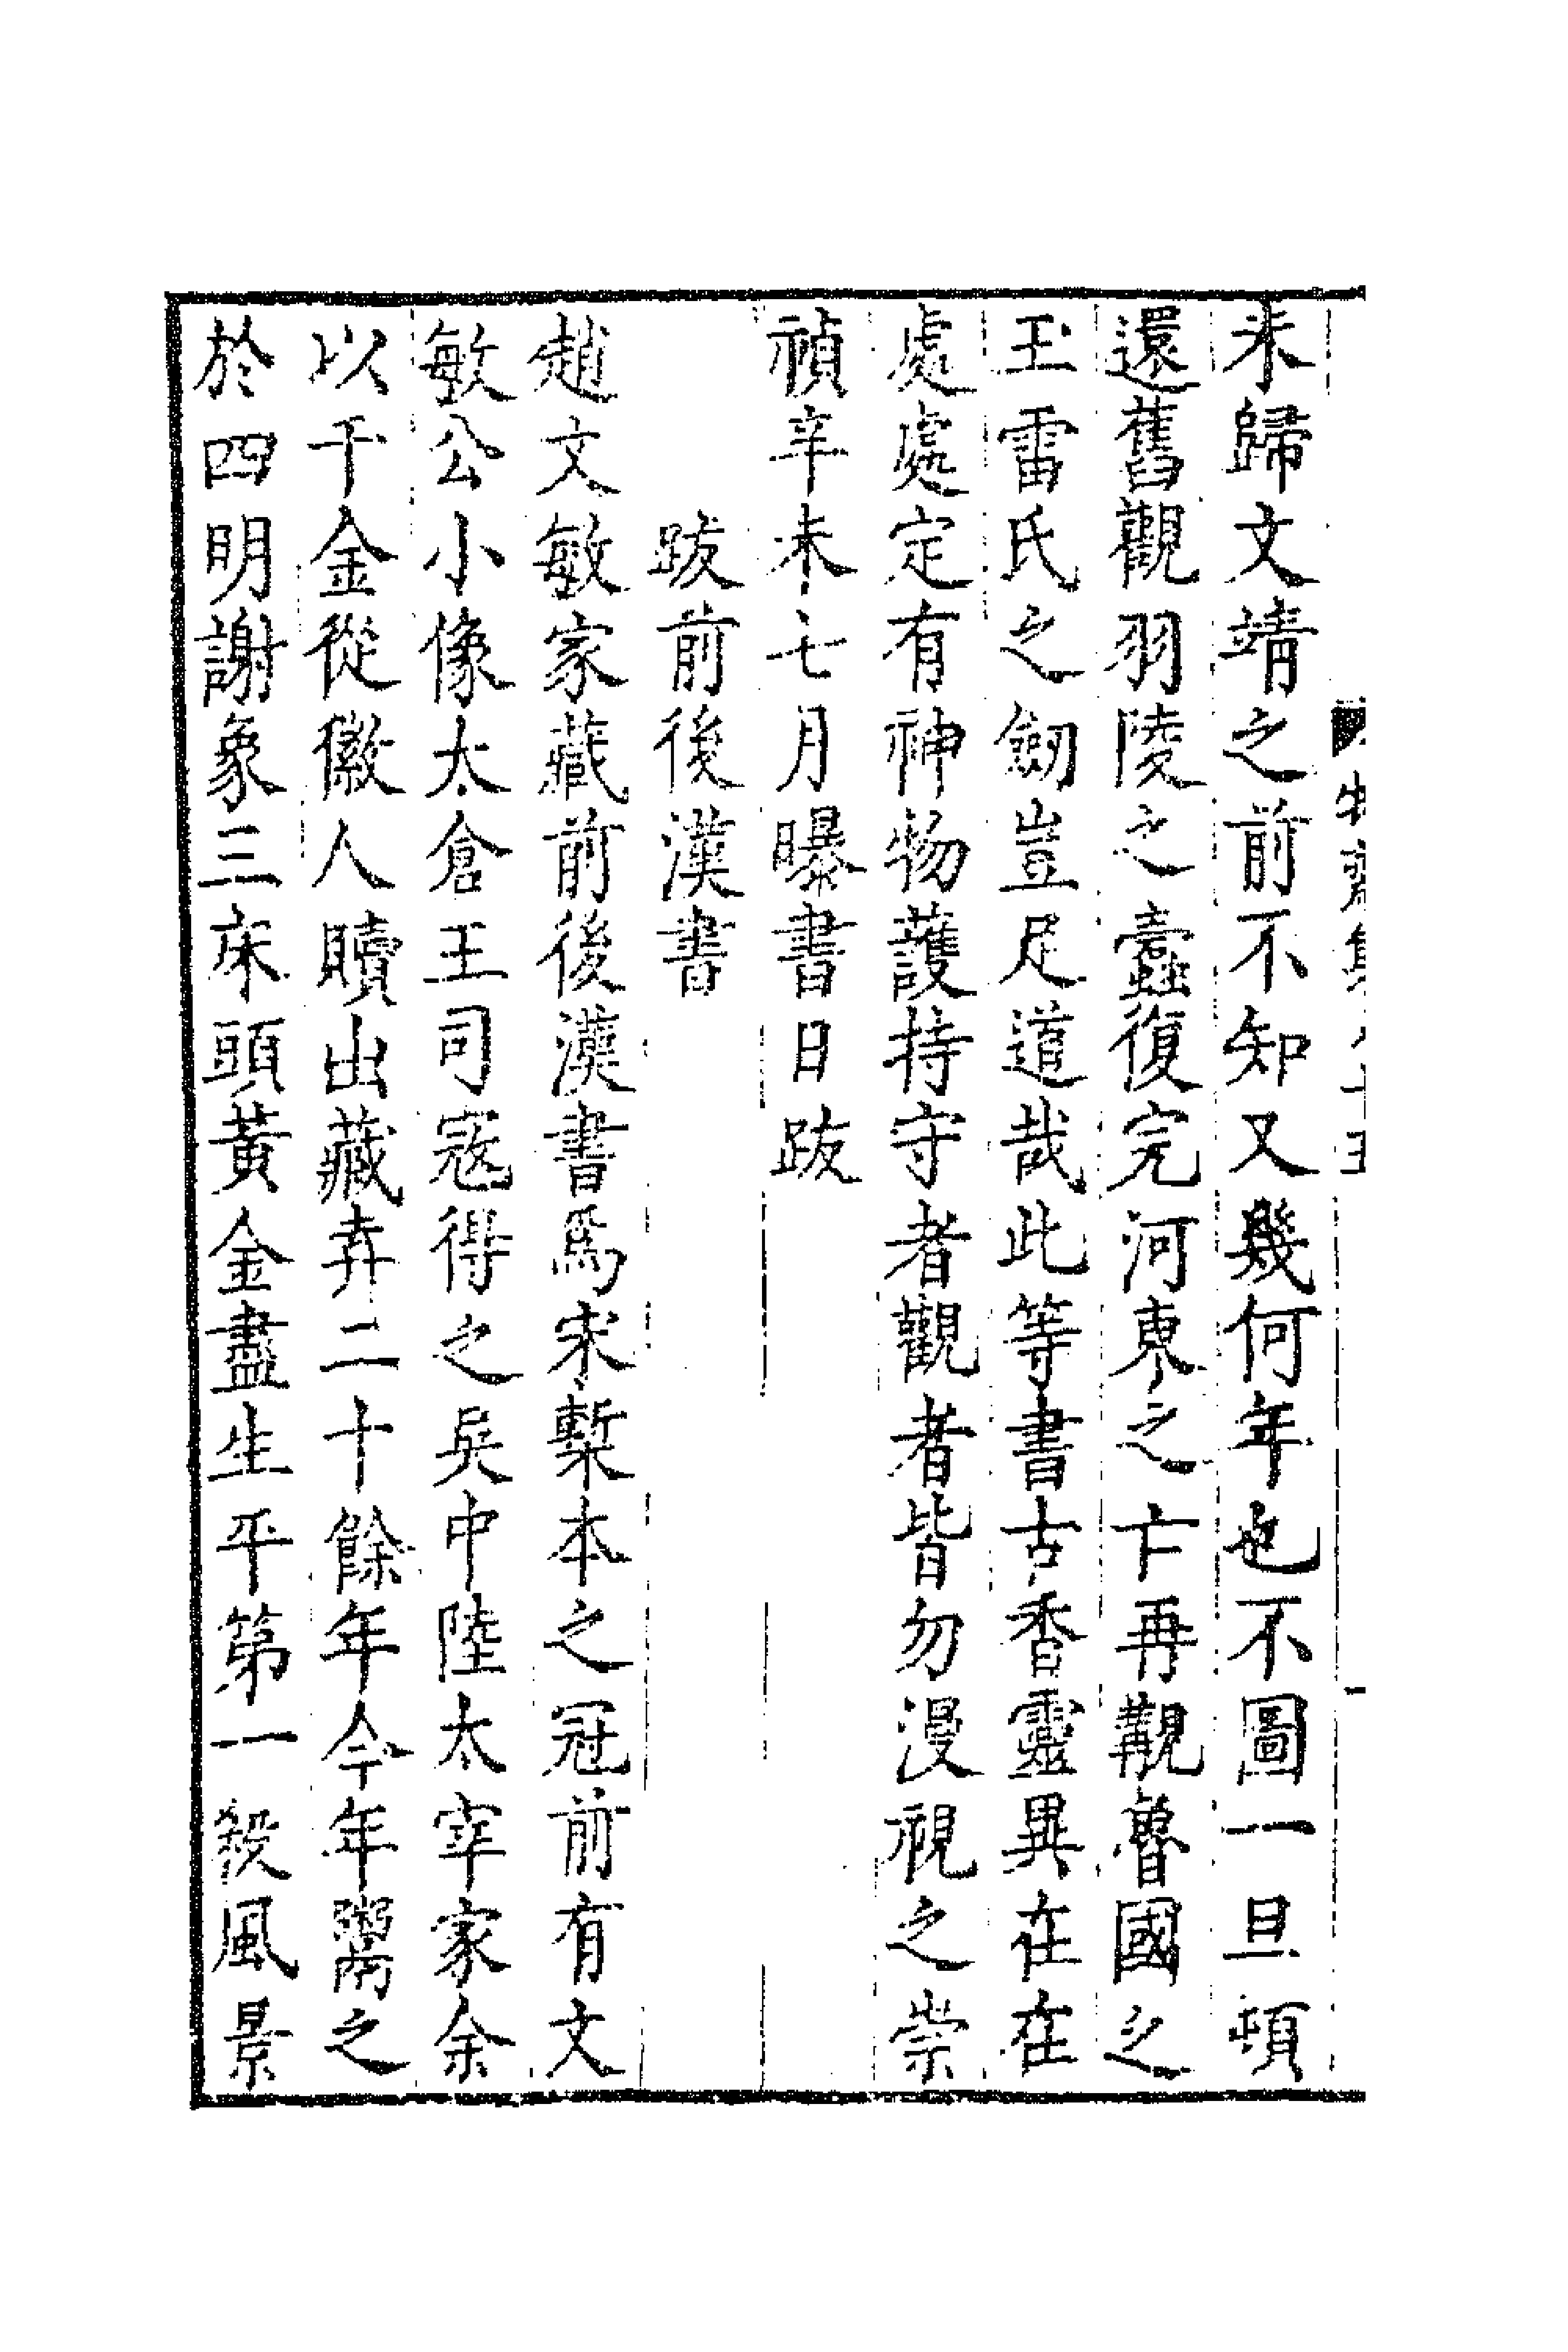 未歸文靖之前不知又幾何年也不圖一旦頓
還舊觀羽陵之蠹復完河東之亡再覯魯國之
玉雷氏之劒豈足道哉此等書古香靈異在在
處處定有神物護持守者觀者皆勿漫視之崇
禎辛未七月曝書日跋
跋前後漢書
趙文敏家藏前後漢書爲宋槧本之冠前有文
敏公小像太倉王司寇得之吳中陸太宰家余
以千金從徽人贖出藏弆二十餘年今年鬻之
於四明謝象三床頭黃金盡生平第一殺風景